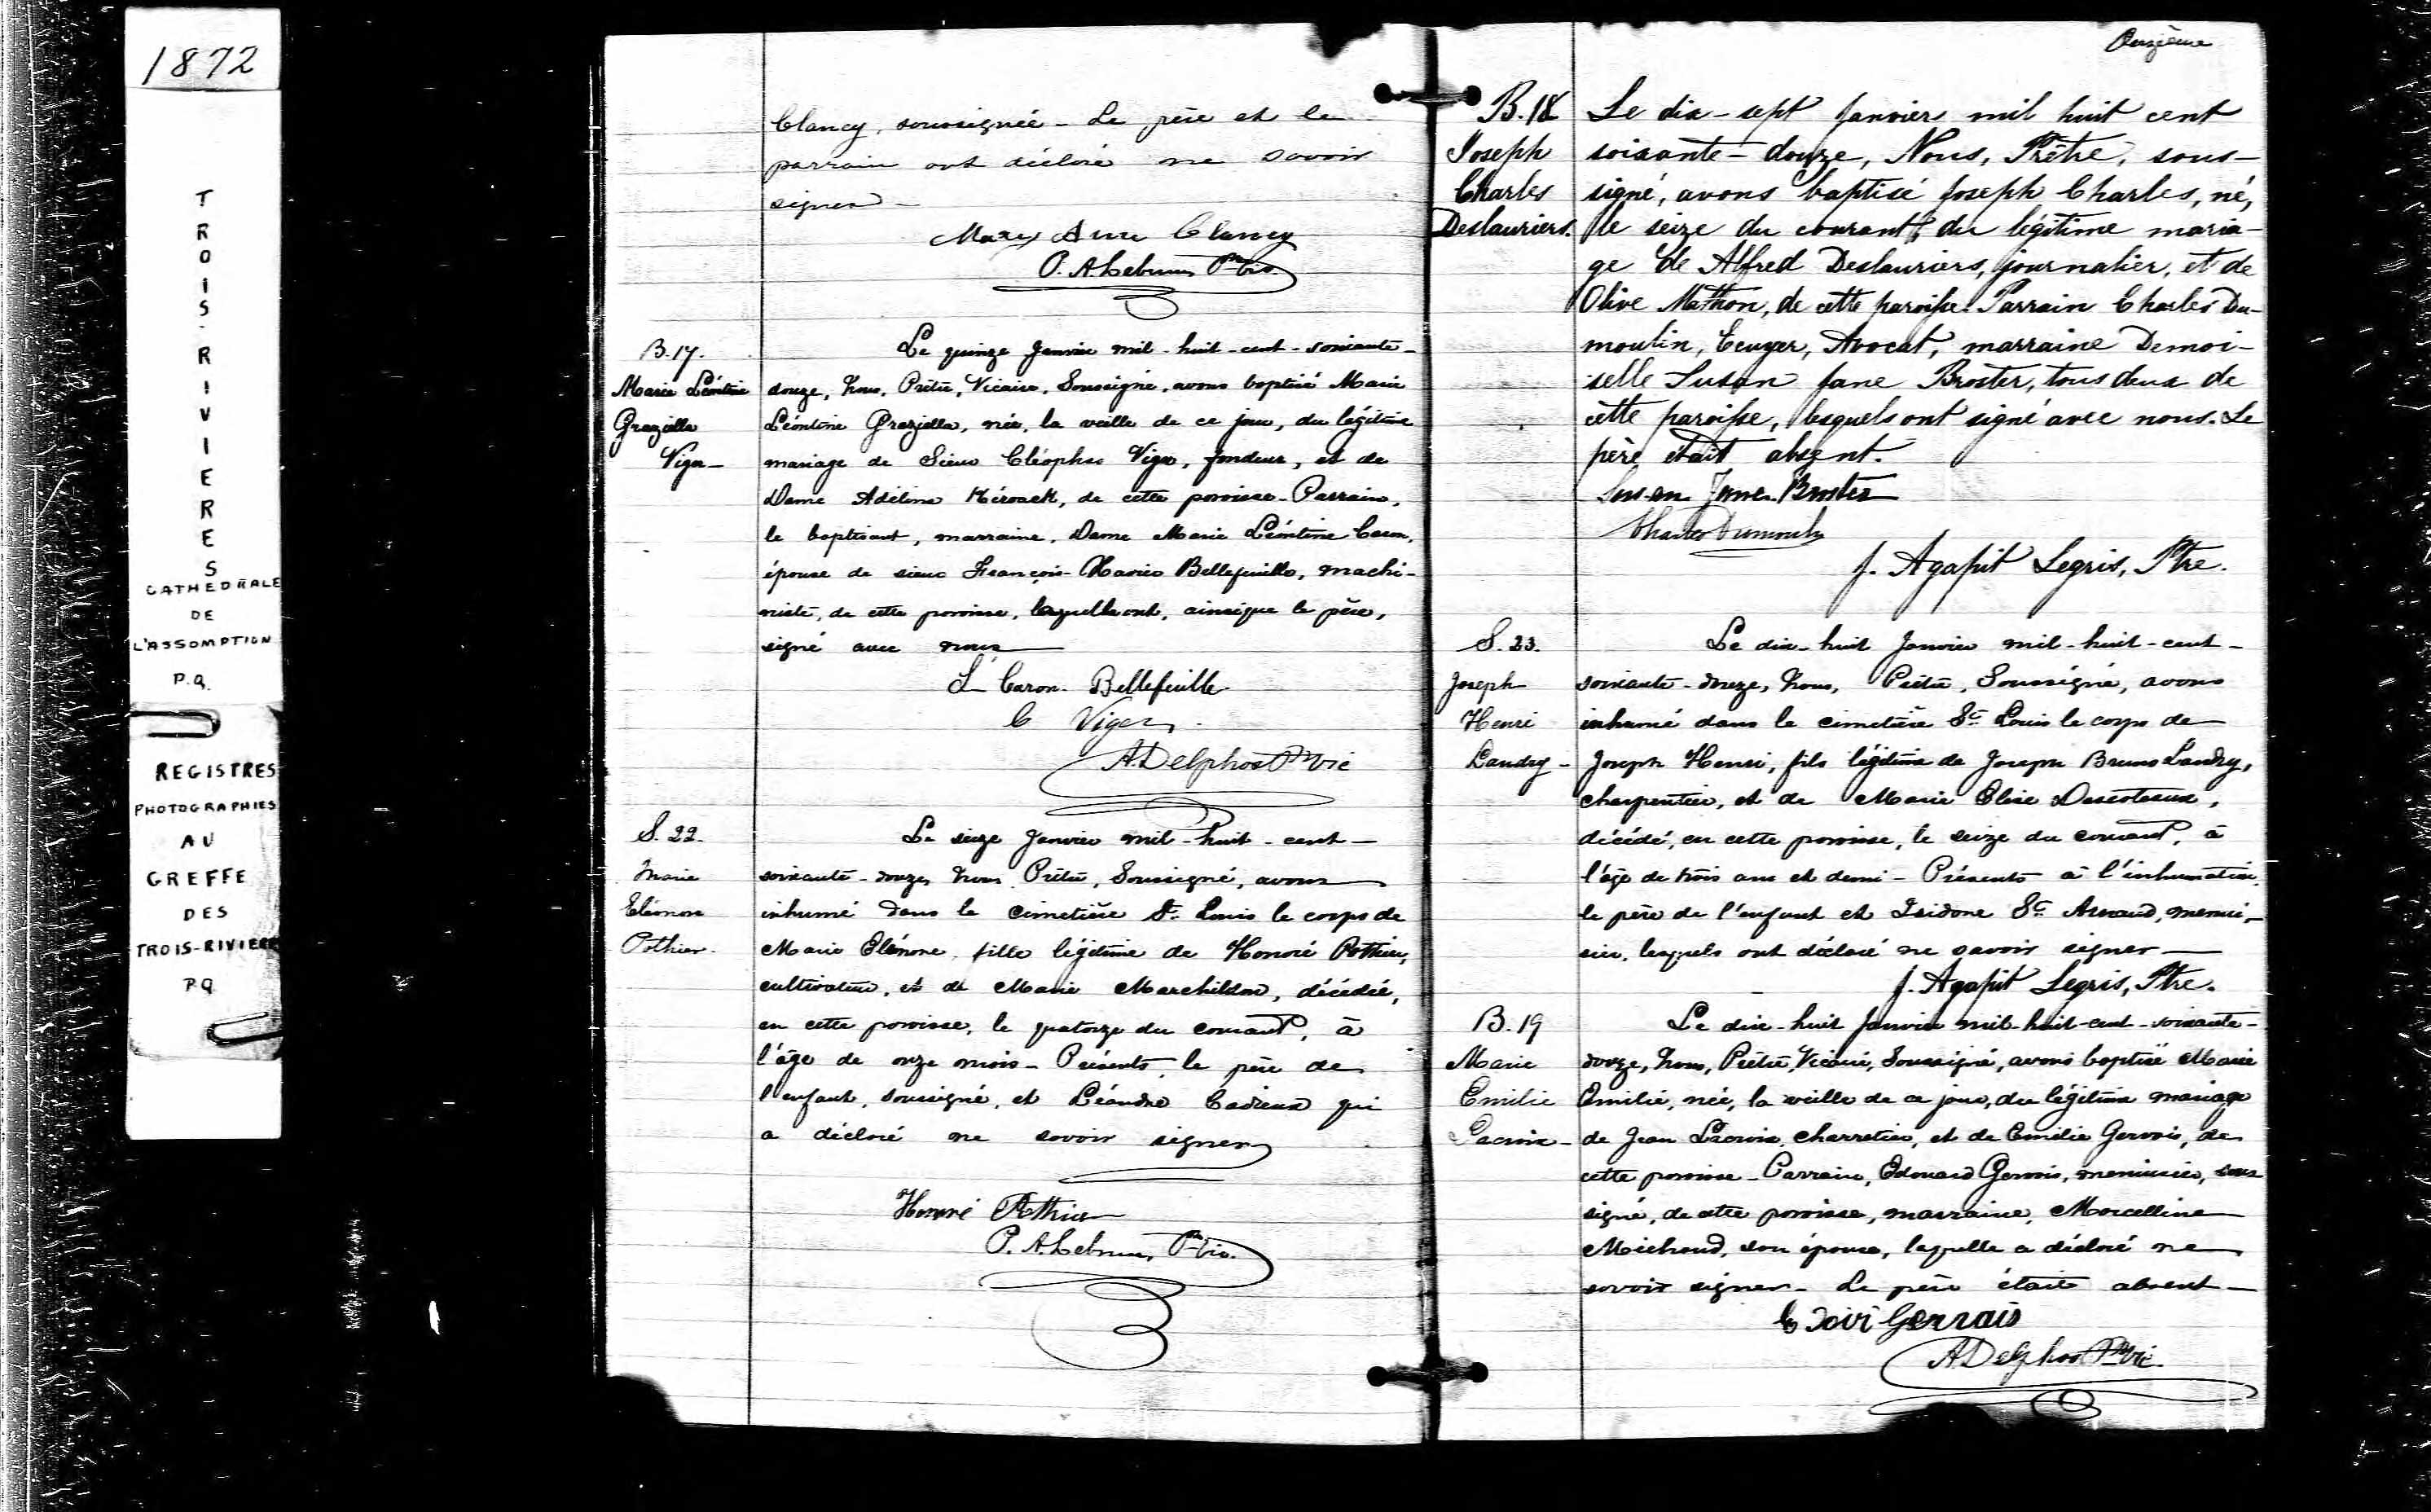 1872
TROIS-RIVIERES
CATHEDRALE
DE
L'ASSOMPTION
P.Q.
REGISTRES
PHOTOGRAPHIES
AU
GREFFE
DES
TROIS-RIVIERE
P.Q
Clancy, soussignée - Le père et le
parrain ont déclaré ne savoir
signer -
Mary Anne Clancy
P. A. Lebrun Ptre Vic
B.17.
Marie Léontine
Graziella
Viger -
Le quinze Janvier mil-huit-cent-soixante-
douze, Nous, Prêtre, Vicaire, Soussigné, avons baptisé Marie
Léontine Graziella, née, la veille de ce jour, du légitime
mariage de Sieur Cléophas Viger, fondeur, et de
Dame Adéline Kérouack, de cette paroisse - Parrain,
le baptisant, marraine, Dame Marie Léontine Caron,
épouse de sieur François-Xavier Bellefeuille, machi-
niste, de cette paroisse, laquelle ont, ainsique le père,
signé avec nous
L Caron Bellefeuille
C Viger
A. Delphos Ptre Vic
S. 22.
Marie
Eléonore
Pothier.
Le seize Janvier mil-huit-cent-
soixante-douze, Nous Prêtre, Soussigné, avons
inhumé dans le cimetière St. Louis le corps de
Marie Elénore, fille légitime de Honoré Pothier,
cultivateur, et de Marie Marchildon, décédée,
en cette paroisse, le quatorze du courant, à
l'âge de onze mois - Présents, le père de
l'enfant, soussigné, et Léandre Cadieux qui
a déclaré ne savoir signer
Honoré Pothier
P. A. Lebrun, Ptre Vic.
Onzième
B.18
Joseph
Charles
Deslauriers.
Le dix-sept Janvier mil huit cent
soixante-douze, Nous, Prêtre, sous-
signé, avons baptisé Joseph Charles, né,
le seize du courant, du légitime maria-
ge de Alfred Deslauriers, journalier, et de
Olive Mathon, de cette paroisse. Parrain Charles Du-
moulin, Ecuyer, Avocat, marraine Demoi-
selle Susan Jane Broster, tous deux de
cette paroisse, lesquels ont signé avec nous. Le
père était absent.
Susan Jane Broster
Charles Dumoulin
J. Agapit Legris, Ptre.
S. 23.
Joseph
Henri
Landry -
Le dix-huit Janvier mil-huit-cent-
soixante-douze, Nous, Prêtre, Soussigné, avons
inhumé dans le cimetière St. Louis le corps de
Joseph Henri, fils légitime de Joseph Bruno Landry,
charpentier, et de Marie Elise Descoteaux,
décédé, en cette paroisse, le seize du courant, à
l'âge de trois ans et demi - Présents à l'inhumation,
le père de l'enfant et Isidore St. Arnaud, menui-
sier, lesquels ont déclaré ne savoir signer -
J. Agapit Legris, Ptre.
B. 19
Marie
Emilie
Lacroix -
Le dix-huit Janvier mil-huit-cent-soixante-
douze, Nous, Prêtre, Vicaire, Soussigné, avons baptisé Marie
Emilie, née, la veille de ce jour, du légitime mariage
de Jean Lacroix, charretier, et de Emilie Gervais, de
cette paroisse - Parrain, Edouard Gervais, menuisier, sous
signé, de cette paroisse, marraine, Marcelline
Michaud, son épouse, laquelle a déclaré ne
savoir signer - Le père était absent -
Gervais
A Delphos Ptre Vic